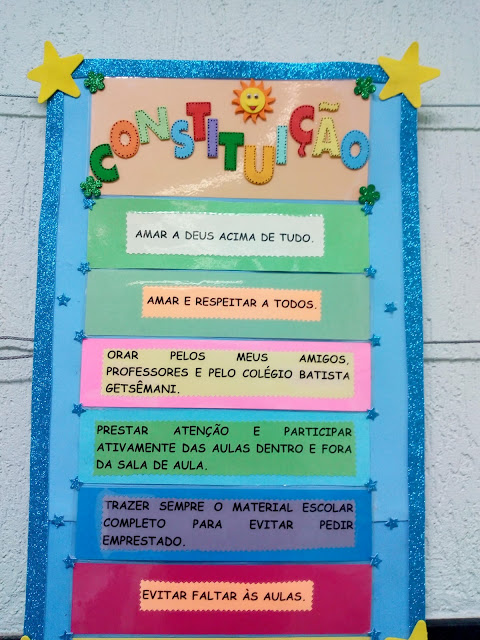 CONSTITUIÇÃO
AMAR A DEUS ACIMA DE TUDO.
AMAR E RESPEITAR A TODOS.
ORAR PELOS MEUS AMIGOS,
PROFESSORES E PELO COLÉGIO BATISTA
GETSÊMANI.
PRESTAR ATENÇÃO E PARTICIPAR
ATIVAMENTE DAS AULAS DENTRO E FORA
DA SALA DE AULA.
TRAZER SEMPRE O MATERIAL ESCOLAR
COMPLETO PARA EVITAR PEDIR
EMPRESTADO.
EVITAR FALTAR ÀS AULAS.